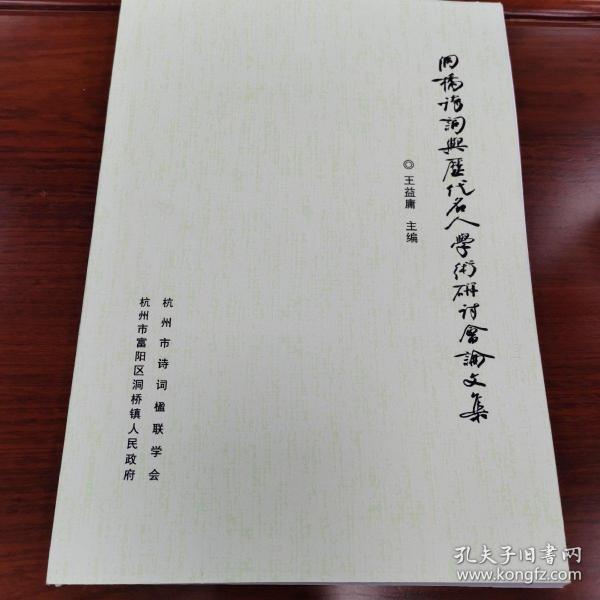 洞橋詩詞與歷代名人學術研討會論文集
◎王益庸 主编
杭州市诗词楹联学会
杭州市富阳区洞桥镇人民政府
孔夫子旧书网
www.kongfz.com